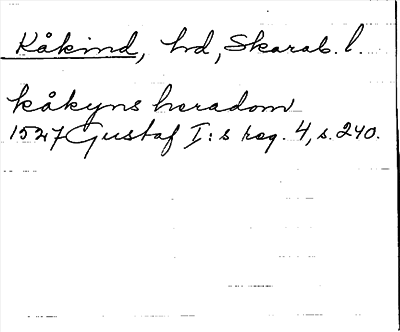 Kåkind, hd, Skarab. l.
kåkyns heradom
1527 Gustaf I:s reg. 4, s. 240.